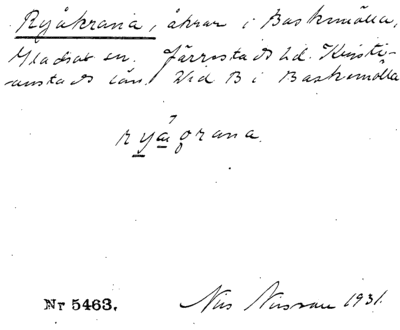 Ryåkrana, åkrar i Baskemölla,
Gladsax sn. Järrestads hd. Kristi-
anstads län. Ved B i Baskemölla
ryågrana.
Nr 5463. Nils Nilsson 1931.